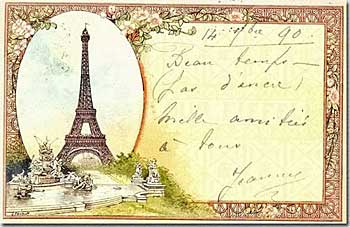 14 9bre 90.
Beau temps —
(pas d'encre)
mille amitiés
à tous
Jeanne